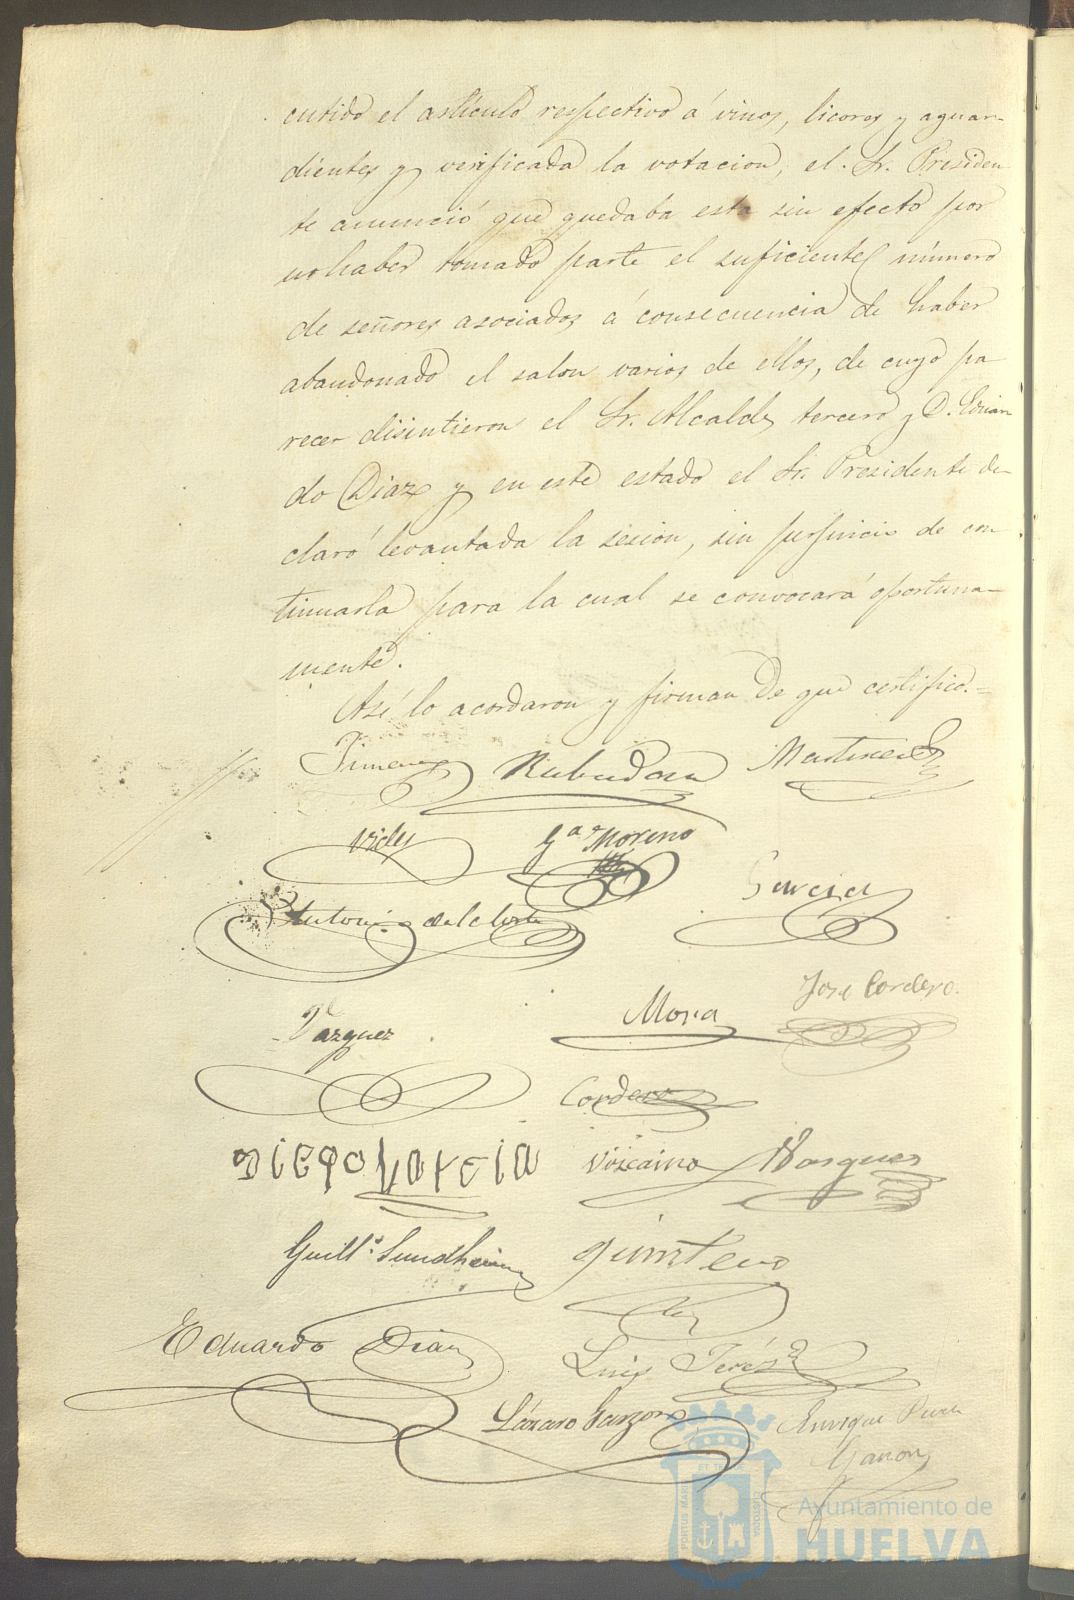 cutido el artículo respectivo á vinos, licores y aguar-
dientes y verificada la votacion, el Sr. Presiden
te anunció que quedaba esta sin efecto por
no haber tomado parte el suficiente número
de señores asociados á consecuencia de haber
abandonado el salon varios de ellos, de cuyo pa
recer disintieron el Sr. Alcalde tercero y D. Eduar
do Diaz y en este estado el Sr. Presidente de-
claró levantada la sesion, sin perjuicio de con
tinuarla para la cual se convocará oportuna-
mente.
Así lo acordaron y firman de que certifico.=
Jimenez Martinez
Gª Moreno
Garcia
Antonio de la Corte
Vazquez Mora José Cordero.
Cordero
DIEGO GARCIA Vizcaino Vazquez
Guillº Sundheim Quintero
Eduardo Diaz Luis
Lázaro Garzon Enrique
Ayuntamiento de
HUELVA